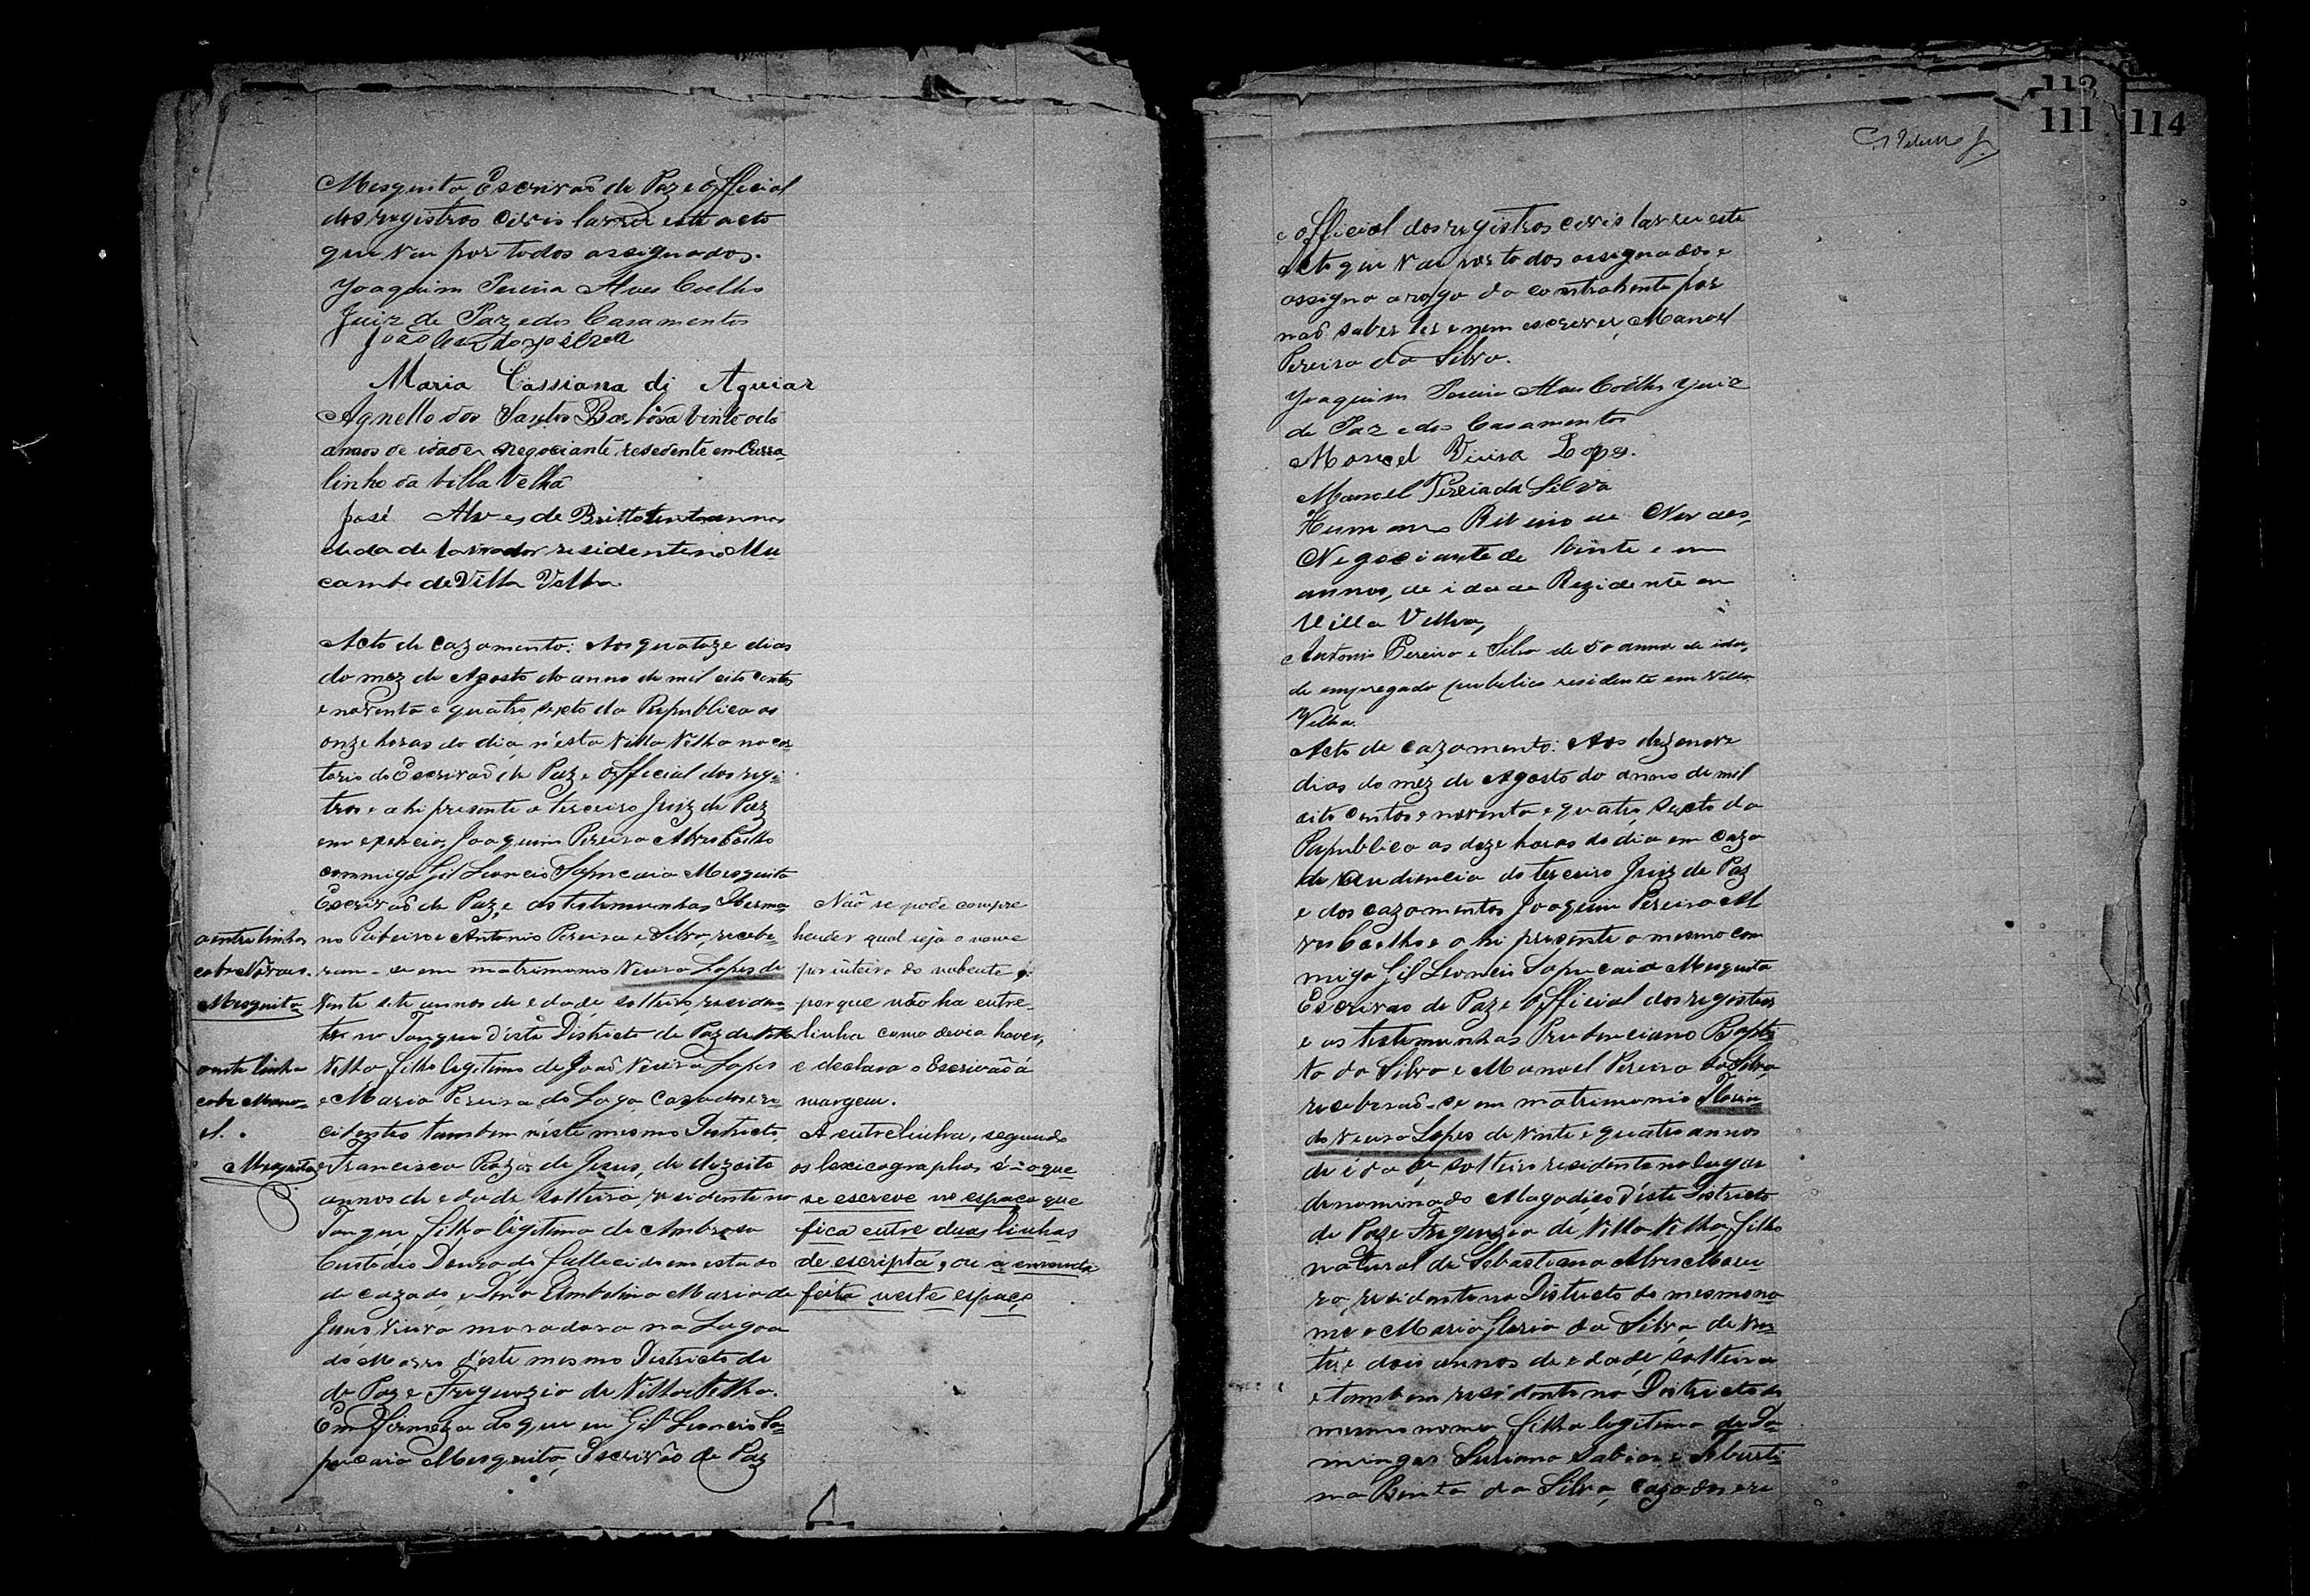 Mesquita, Escrivaõ de Paz e Official
dos registros civis lavrei este acto
que vai por todos assignados.
Joaquim Pereira Alves Coelho
Juiz de Paz e dos Casamentos
João
Maria Cassiana di Aguiar
Agnello dos Santos Barbosa vinte oito
annos de idade negociante, resedente em Curra-
linho da Villa Velha
José Alves de Britto trinta annos
de lavrador residente no Mu
cambo de Villa Velha
Acto de cazamento: Aos quatoze dias
do mez de Agosto do anno de mil oito centos
e noventa e quatro, sexto da Republica as
onze horas do dia n'esta Villa Velha no car
torio do Escrivaõ de Paz e Official dos regis-
tros e ahi presente o terceiro Juiz de Paz
em exercicio Joaquim Pereira Alves Coelho
commigo Gil Leoncio Sapucaia Mesquita
Escrivaõ de Paz, e as testimunhas Herma-
no Ribeiro e Antonio Pereira e Silva, recebe-
ram-se em matrimonio Vieira Lopes de
vinte sete annos de edade, solteiro, residen-
te no Tanque d'este Districto de Paz de Villa
Velha filho legitimo de Joaõ Vieira Lopes
e Maria Pereira do Lago, cazados e re-
cidentes tambem n'este mesmo Districto,
e Francisca Roza de Jesus, de dezoito
annos de edade solteira, residente no
Tanque, filha legitima de Ambrosio
Custodio Dourado, fallecido em estado
de cazado, e Dona Umbelina Maria de
Jesus, viuva moradora na Lagoa
do Morro d'este mesmo Districto de
de Paz e Freguezia de Villa Velha.
Em firmeza do que eu Gil Leoncio Sa-
pucaia Mesquita, Escrivão de Paz
a entre linha
cabe Novaes.
Mesquita
a entre linha
cabe Mano-
el.
Mesquita
Não se pode compre
hender qual seja o nome
por inteiro do nubente
porque não ha entre-
linha como devia haver,
e declara o Escrivão á
margem.
A entrelinha, segundo
os lexicographos é - o que
se escreve no espaço que
fica entre duas linhas
de escripta, ou a emenda
feita neste espaço
112
111
114
e Official dos registros civis lavrei este
acto que vai por todos assignados e
assigna a rogo da contrahente por
naõ saber ler e nem escrever, Manoel
Pereira da Silva.
Joaquim Pereira Alves Coêlho Juiz
de Paz e dos Casamentos
Manoel Vieira Lopes.
Manoel Pereira da Silva
Hermano Ribeiro de Novaes,
Negociante de vinte e um
annos, de idade Rezidente em
Villa Velha,
Antonio Pereira e Silva de 50 annos de ida-
de empregado publico residente em Villa
Velha.
Acto de cazamento: Aos dezenove
dias do mez de Agosto do anno de mil
oito centos e noventa e quatro, sexto da
Republica as doze horas do dia em caza
de Audiencia do terceiro Juiz de Paz
e dos cazamentos Joaquim Pereira Al
ves Coelho e a hi presente o mesmo com
migo Gil Leoncio Sapucaia Mesquita
Escrivão de Paz e Official dos registros
e as testemunhas Prudenciano Baptis-
ta da Silva e Manoel Pereira da Silva,
receberaõ-se em matrimonio
Vieira Lopes de vinte e quatro annos
de idade, solteiro residente no lugar
denominado d'este Districto
de Paz e Freguezia de Villa Velha, filho
natural de Sebastiana Alves
residente no Districto do mesmo no
me e Maria Gloria da Silva, de vin-
te e dois annos de edade, solteira
e tambem residente no Districto do
mesmo nome filha legitima de Do-
mingos Suriano
na Benta da Silva, cazados e re